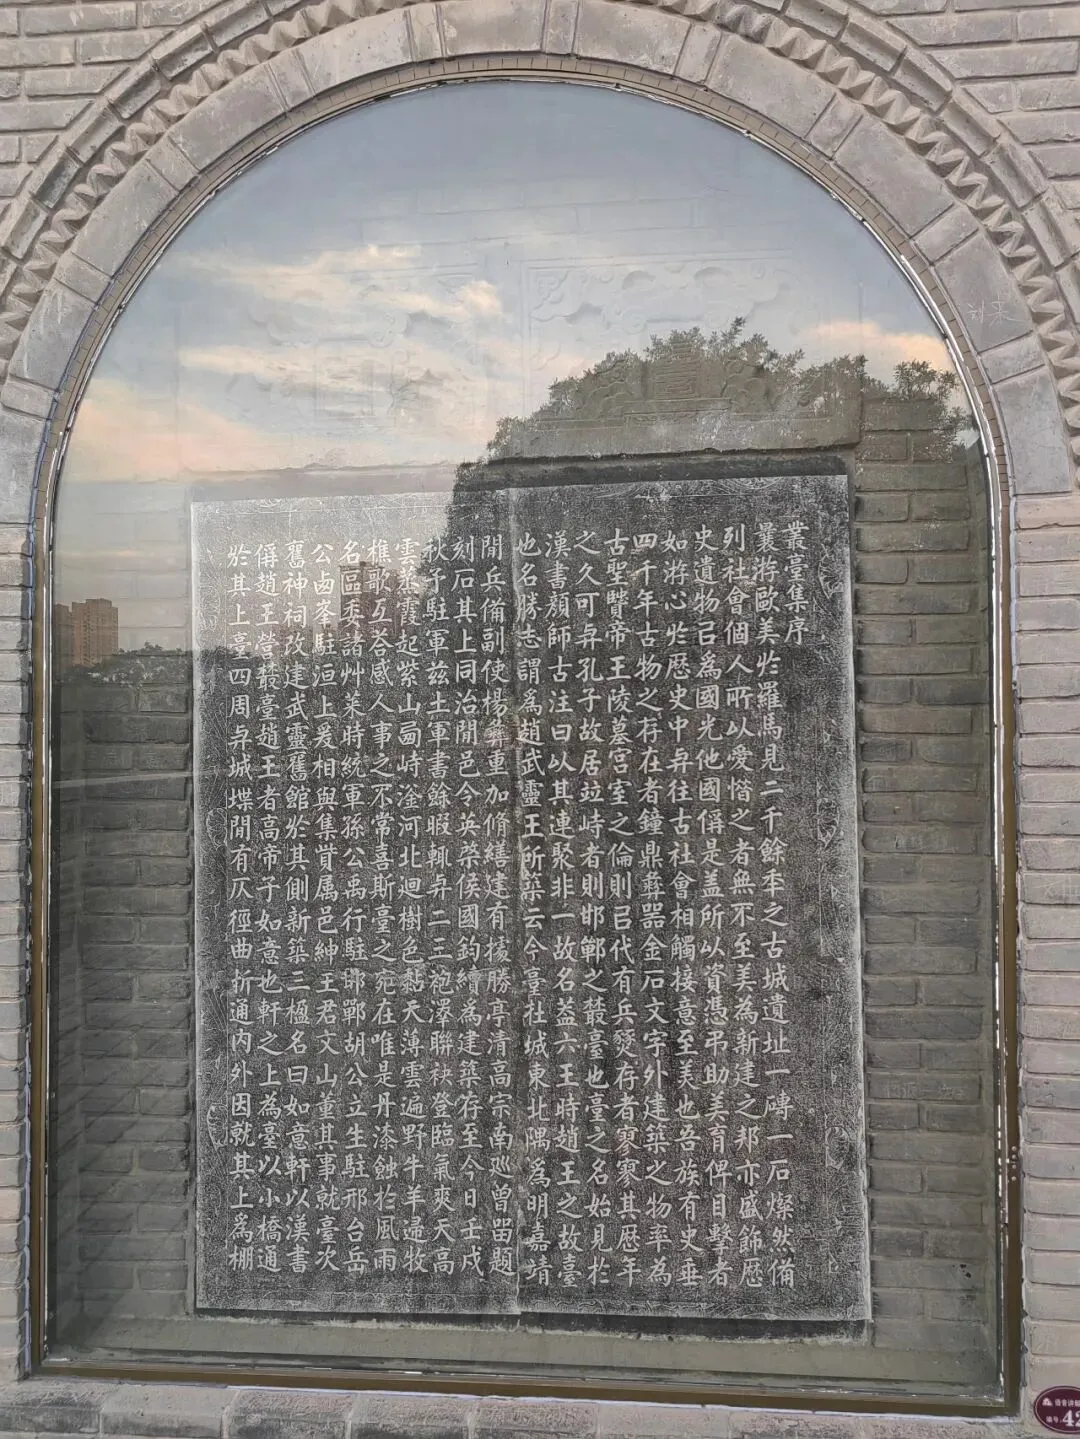 叢臺集序
曩游歐美於羅馬見二千餘年之古城遺址一磚一石燦然備
列社會個人所以愛惜之者無不至美為新建之邦亦盛飾歷
史遺物已為國光他國偁是盖所以資憑弔助美育俾目擊者
如游心於歷史中與往古社會相觸接意至美也吾族有史垂
四千年古物之存在者鐘鼎彝器金石文字外建築之物率為
古聖賢帝王陵墓宮室之倫則㠯代有兵燹存者寥寥其歷年
之久可與孔子故居竝峙者則邯鄲之叢臺也臺之名始見於
漢書顏師古注曰以其連聚非一故名盖六王時趙王之故臺
也名勝志謂為趙武靈王所築云今臺杜城東北隅為明嘉靖
間兵備副使楊彝重加脩繕建有據勝亭清高宗南巡曾畱題
刻石其上同治間邑令英棨侯國鈞續為建築存至今日壬戌
秋予駐軍兹土軍書餘暇輒與二三袍澤聯袂登臨氣爽天高
雲蒸霞起紫山西峙滏河北迴樹色黏天薄雲遍野牛羊遍牧
樵歌互答感人事之不常喜斯臺之宛在唯是丹漆蝕於風雨
名區委諸艸萊時統軍孫公禹行駐邯鄲胡公立生駐邢台岳
公西峯駐洹上爰相與集貲属邑紳王君文山董其事就臺次
舊神祠改建武靈舊館於其側新築三楹名曰如意軒以漢書
偁趙王營叢臺趙王者高帝子如意也軒之上為臺以小橋通
於其上臺四周與城堞間有仄徑曲折通內外因就其上為棚
语音讲解
编号:42